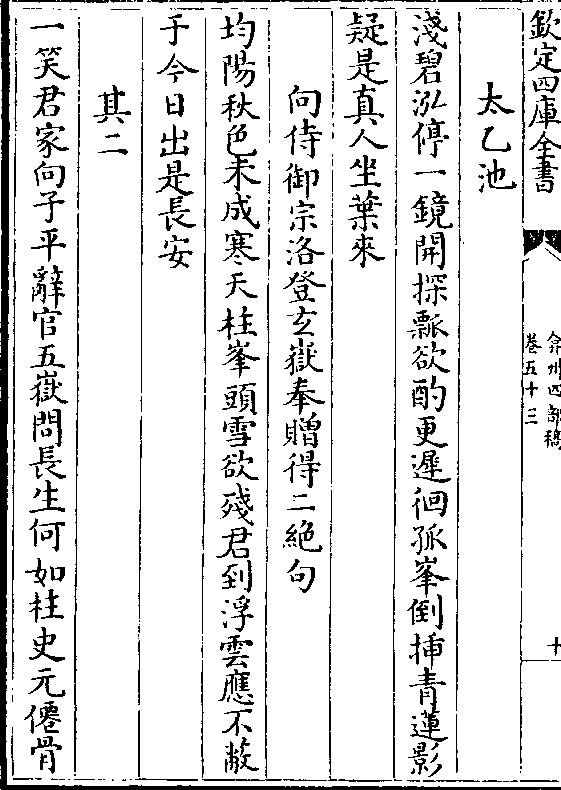 欽定四庫全書
弇州四部稿
卷五十三
十
太乙池
淺碧泓停一鏡開探瓢欲酌更遲徊孤峯倒插青蓮影
疑是真人坐葉來
向侍御宗洛登玄嶽奉贈得二絶句
均陽秋色未成寒天柱峯頭雪欲殘君到浮雲應不蔽
于今日出是長安
其二
一笑君家向子平辭官五嶽問長生何如柱史元僊骨